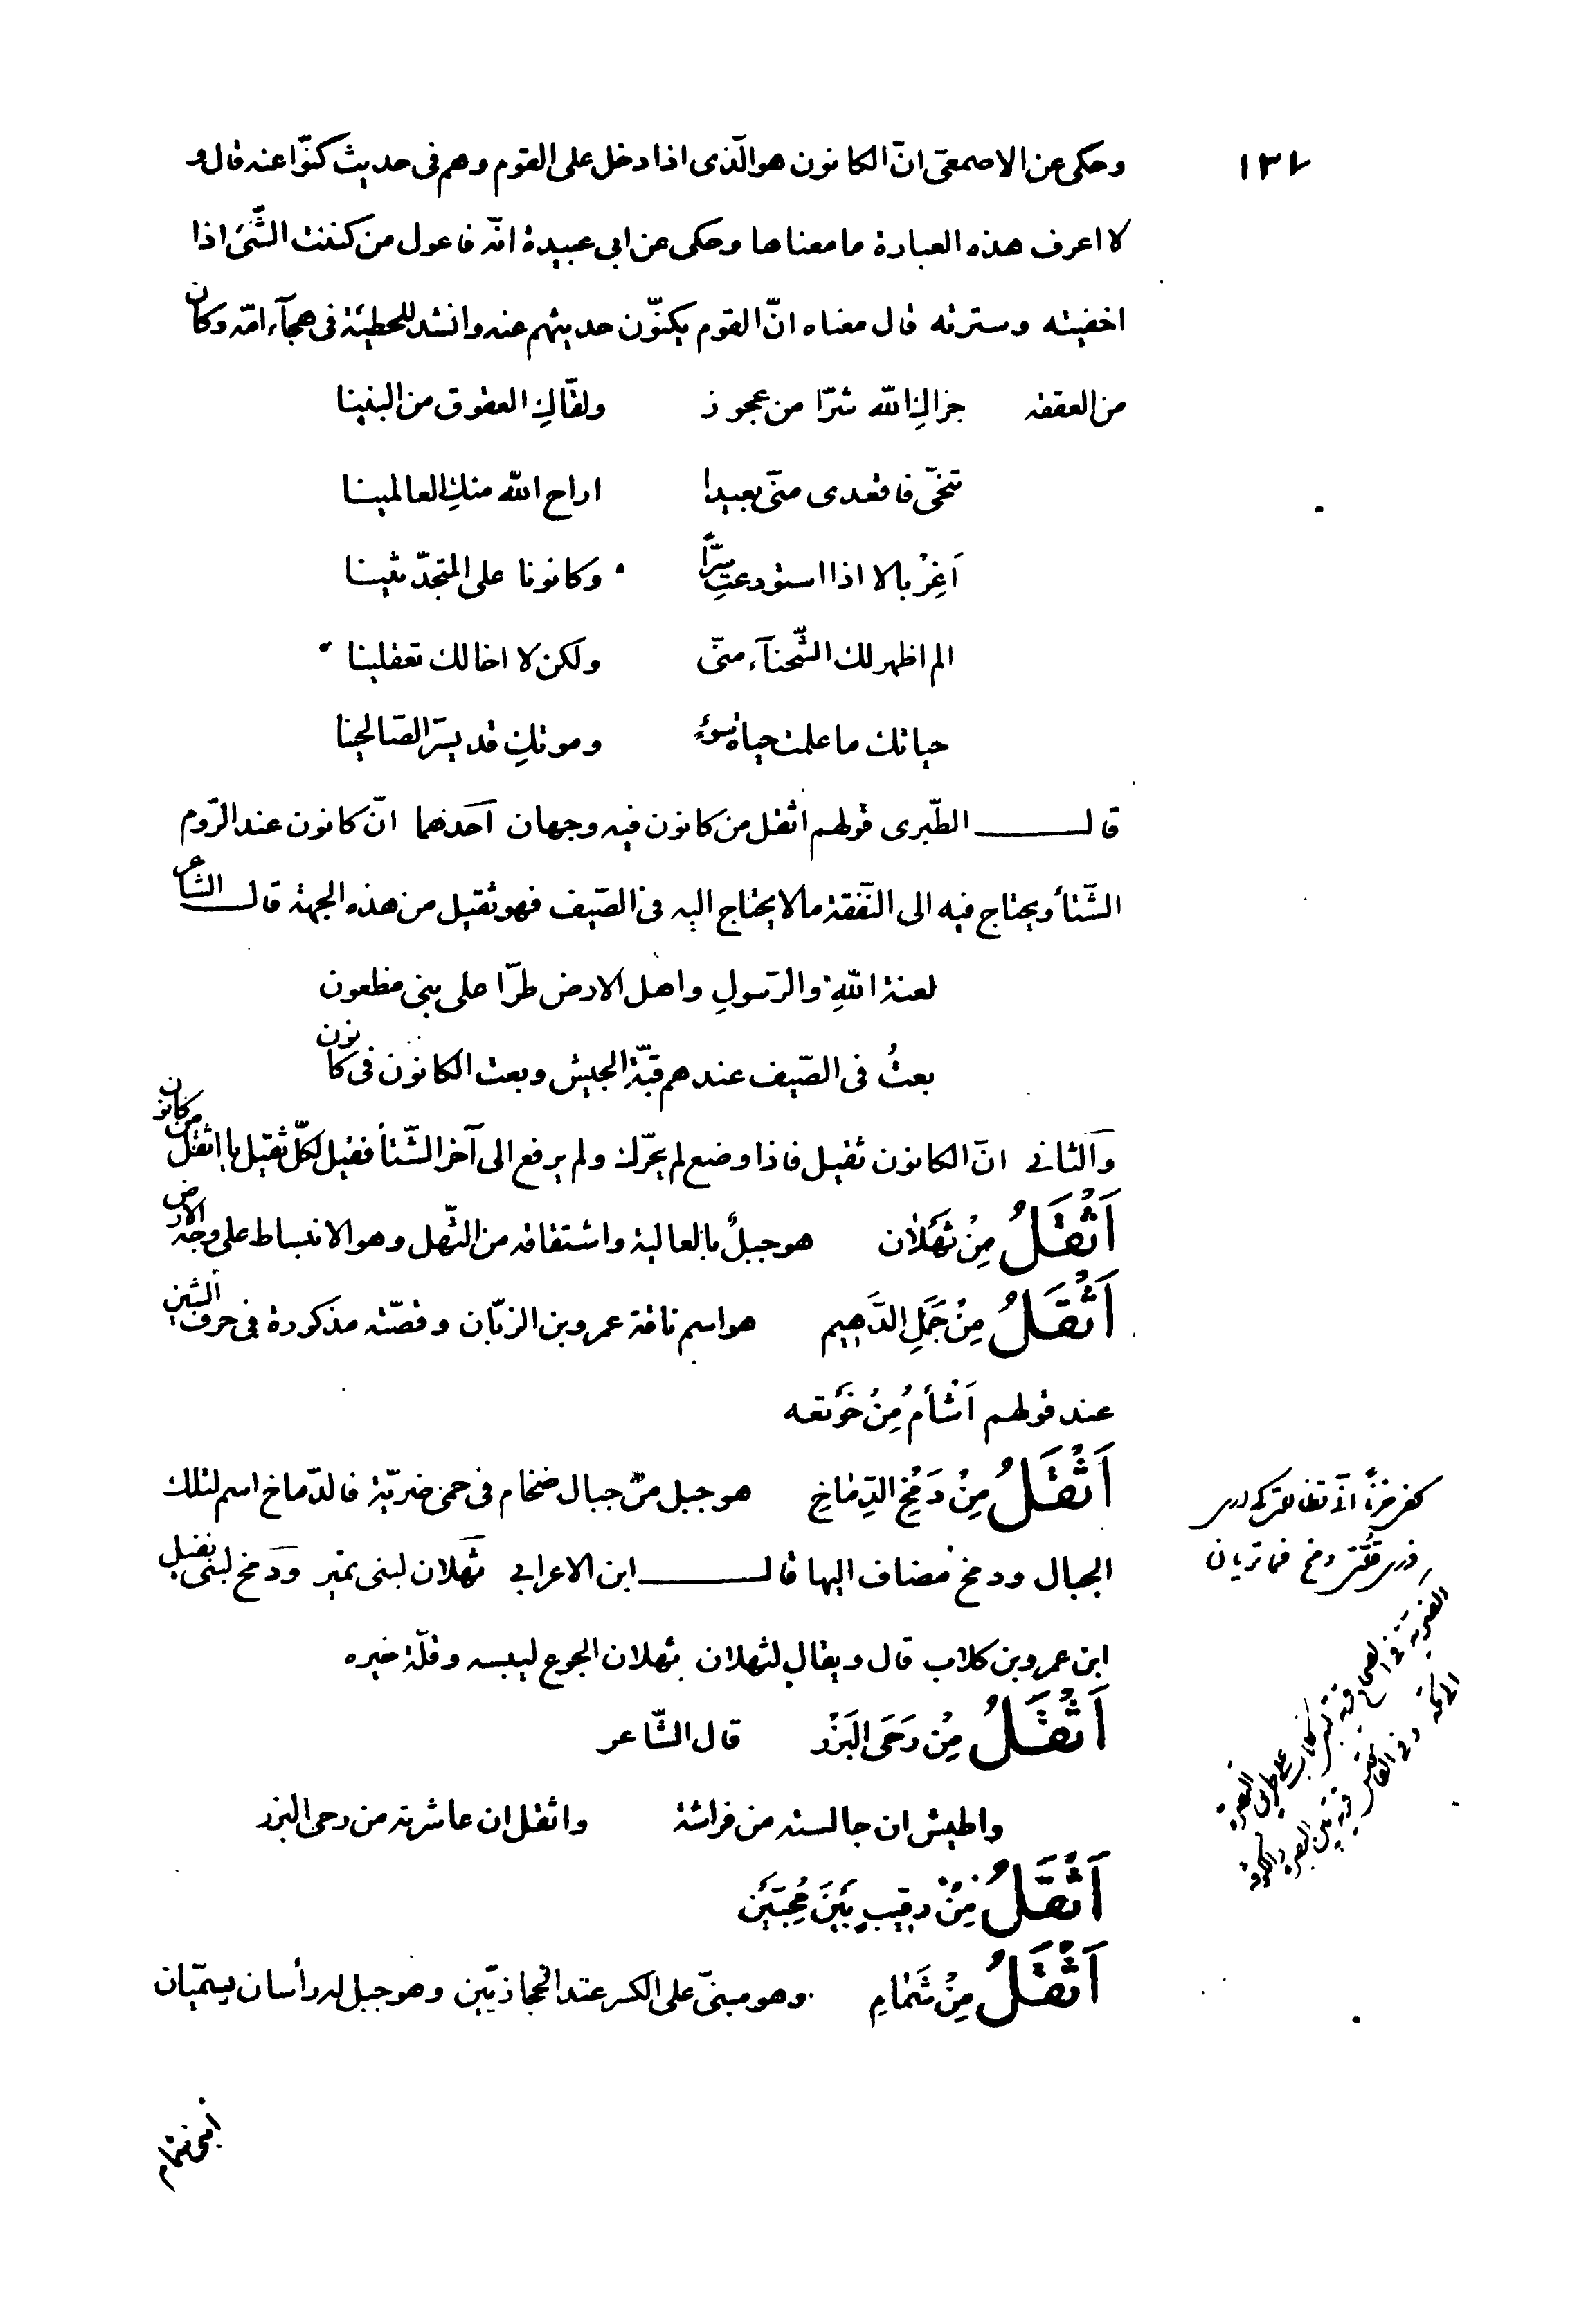 ١٣٧
وحكى عن الاصمعىّ انّ الكانون هو الّذى اذا دخل على القوم وهم فى حديث كنّوا عنه قال و
لا اعرف هذه العبارة ما معناها وحكى عن ابى عبيدة انّه فاعول من كننت الشّئ اذا
اخفيته وسترته قال معناه انّ القوم يكنّون حديثهم عنه وانشد للحطيئة فى هجآء امّه وكان
من العققه جزاكِ اللّه شرّا من عجوز ولقّاكِ العقوق من البنينا
تنحّى فاقعدى منّى بعيدا اراح اللّه منكِ العالمينا
اَغِرْبالا اذا استودعتِ سِرًّا وكانونا على المتحدّثينا
الم اظهر لك الشّحنآء منّى ولكن لا اخالك تعقلينا
حياتك ما علمت حياة سوءٍ وموتكِ قد يسرّ الصّالحينا
قال الطّبرى قولهم اثقل من كانون فيه وجهان اَحَدهما انّ كانون عند الرّوم
الشّتأ ويحتاج فيه الى النّفقة ما لا يحتاج اليه فى الصّيف فهو ثقيل من هذه الجهة قال الشاعر
لعنة اللّهِ والرّسولِ واهل الارض طرّا على بنى مظعون
بعتُ فى الصّيف عندهم قبّة الجيش وبعت الكانون فى كانون
وَالثانى انّ الكانون ثقيل فاذا وضع لم يحرّك ولم يرفع الى آخر الشّتأ فقيل لكلّ ثقيل يا اثقل من كانون
اَثْقَلُ مِنْ ثَهْلَان هو جبلٌ بالعالية واشتقاقه من الثّهل وهو الانبساط على وجه الارض
اَثْقَلُ مِنْ حَمْلِ الدُّهَيْم هو اسم ناقة عمرو بن الزبّان وقصّته مذكورة فى حرف الشين
عند قولهم اَشْأمُ مِنْ خَوْتَعه
اَثْقَلُ مِنْ دَمْخِ الدِّمَاخِ هو جبل من جبال ضخام فى حمى ضريّة فالدّماخ اسم لتلك
الجبال ودمخ مضاف اليها قال ابن الاعرابى ثَهْلان لبنى نمير وَدَمخ لبنى نفيل
ابن عمرو بن كلاب قال ويقال لثهلان ثهلان الجوع ليبسه وقلّة خيره
اَثْقَلُ مِنْ رَحَى البَزْر قال الشّاعر
واطيش ان جالسته من فراشة واثقل ان عاشرته من رحى البزر
اَثْقَلُ مِنْ رقيبٍ بَيْنَ مُحِبَّيْنِ
اَثْقَلُ مِنْ شَمَامِ وهو مبنىّ على الكسر عند الحجازيّين وهو جبل له رأسان يسمّيان
ابنى شمام
كفى حزنًا انّى
ذرى قلّتى دمخ فما تريان